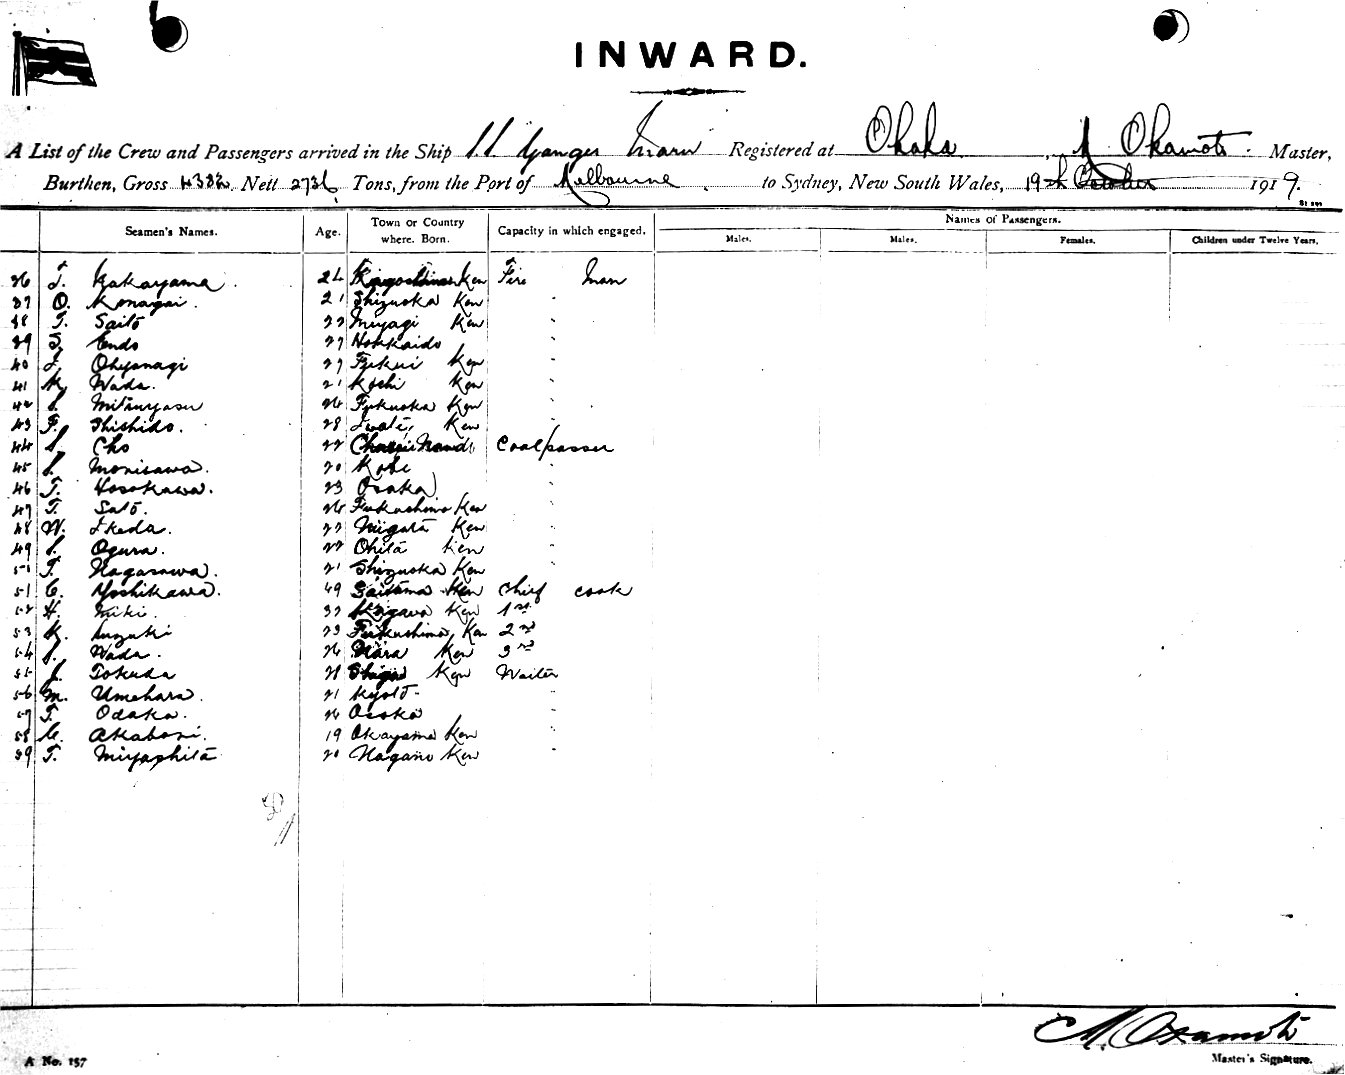 INWARD.
A List of the Crew and Passengers arrived in the Ship S.S. Ganges Maru Registered at Osaka, M. Okamoto. Master,
Burthen, Gross 4382, Nett 2736 Tons, from the Port of Melbourne. to Sydney, New South Wales, 19th October 1919.
Seamen's Names. Age. Town or Country where. Born. Capacity in which engaged. Names of Passengers.
Males. Males. Females. Children under Twelve Years.
36 T. Nakayama. 24 Kagoshima Ken Fire Man
37 O. Konagai. 21 Shizuoka Ken "
38 T. Saito 22 Miyagi Ken "
39 S. Endo 27 Hokkaido "
40 Ohyanagi 27 Fukui Ken "
41 K. Wada. 21 Kochi Ken "
42 S. Mitsuyasu 26 Fukuoka Ken "
43 F. Shishido. 28 Iwate, Ken "
44 S. Cho 22 Coalpasser
45 S. Morisawa. 20 Kobe "
46 T. Hosokawa. 23 Osaka "
47 T. Sato. 26 Fukushima Ken "
48 W. Ikeda. 22 Niigata Ken "
49 S. Ogura. 22 Ohita Ken "
50 T. Nagasawa. 21 Shizuoka Ken "
51 C. Yoshikawa. 49 Saitama Ken Chief cook
52 H. Miki. 32 Kagawa Ken 1st
53 K. Suzuki 23 Fukushima, Ken 2nd
54 S. Wada. 26 Nara Ken 3rd
55 J. Tokuda 21 Shiga Ken Waiter
56 M. Umehara. 21 Kyoto "
57 T. Odaka. 26 Osaka "
58 C. Akabori. 19 Okayama Ken "
59 T. Miyashita 20 Nagano Ken "
M. Okamoto
Master's Signature.
A No. 157